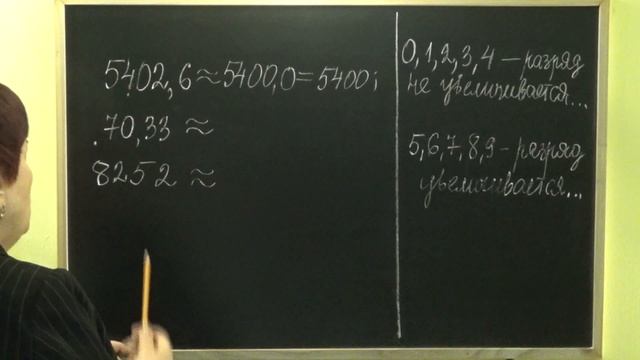 5402,6≈5400,0=5400;
70,33≈
8252≈
0,1,2,3,4 — разряд
не увеличивается...
5,6,7,8,9 - разряд
увеличивается...